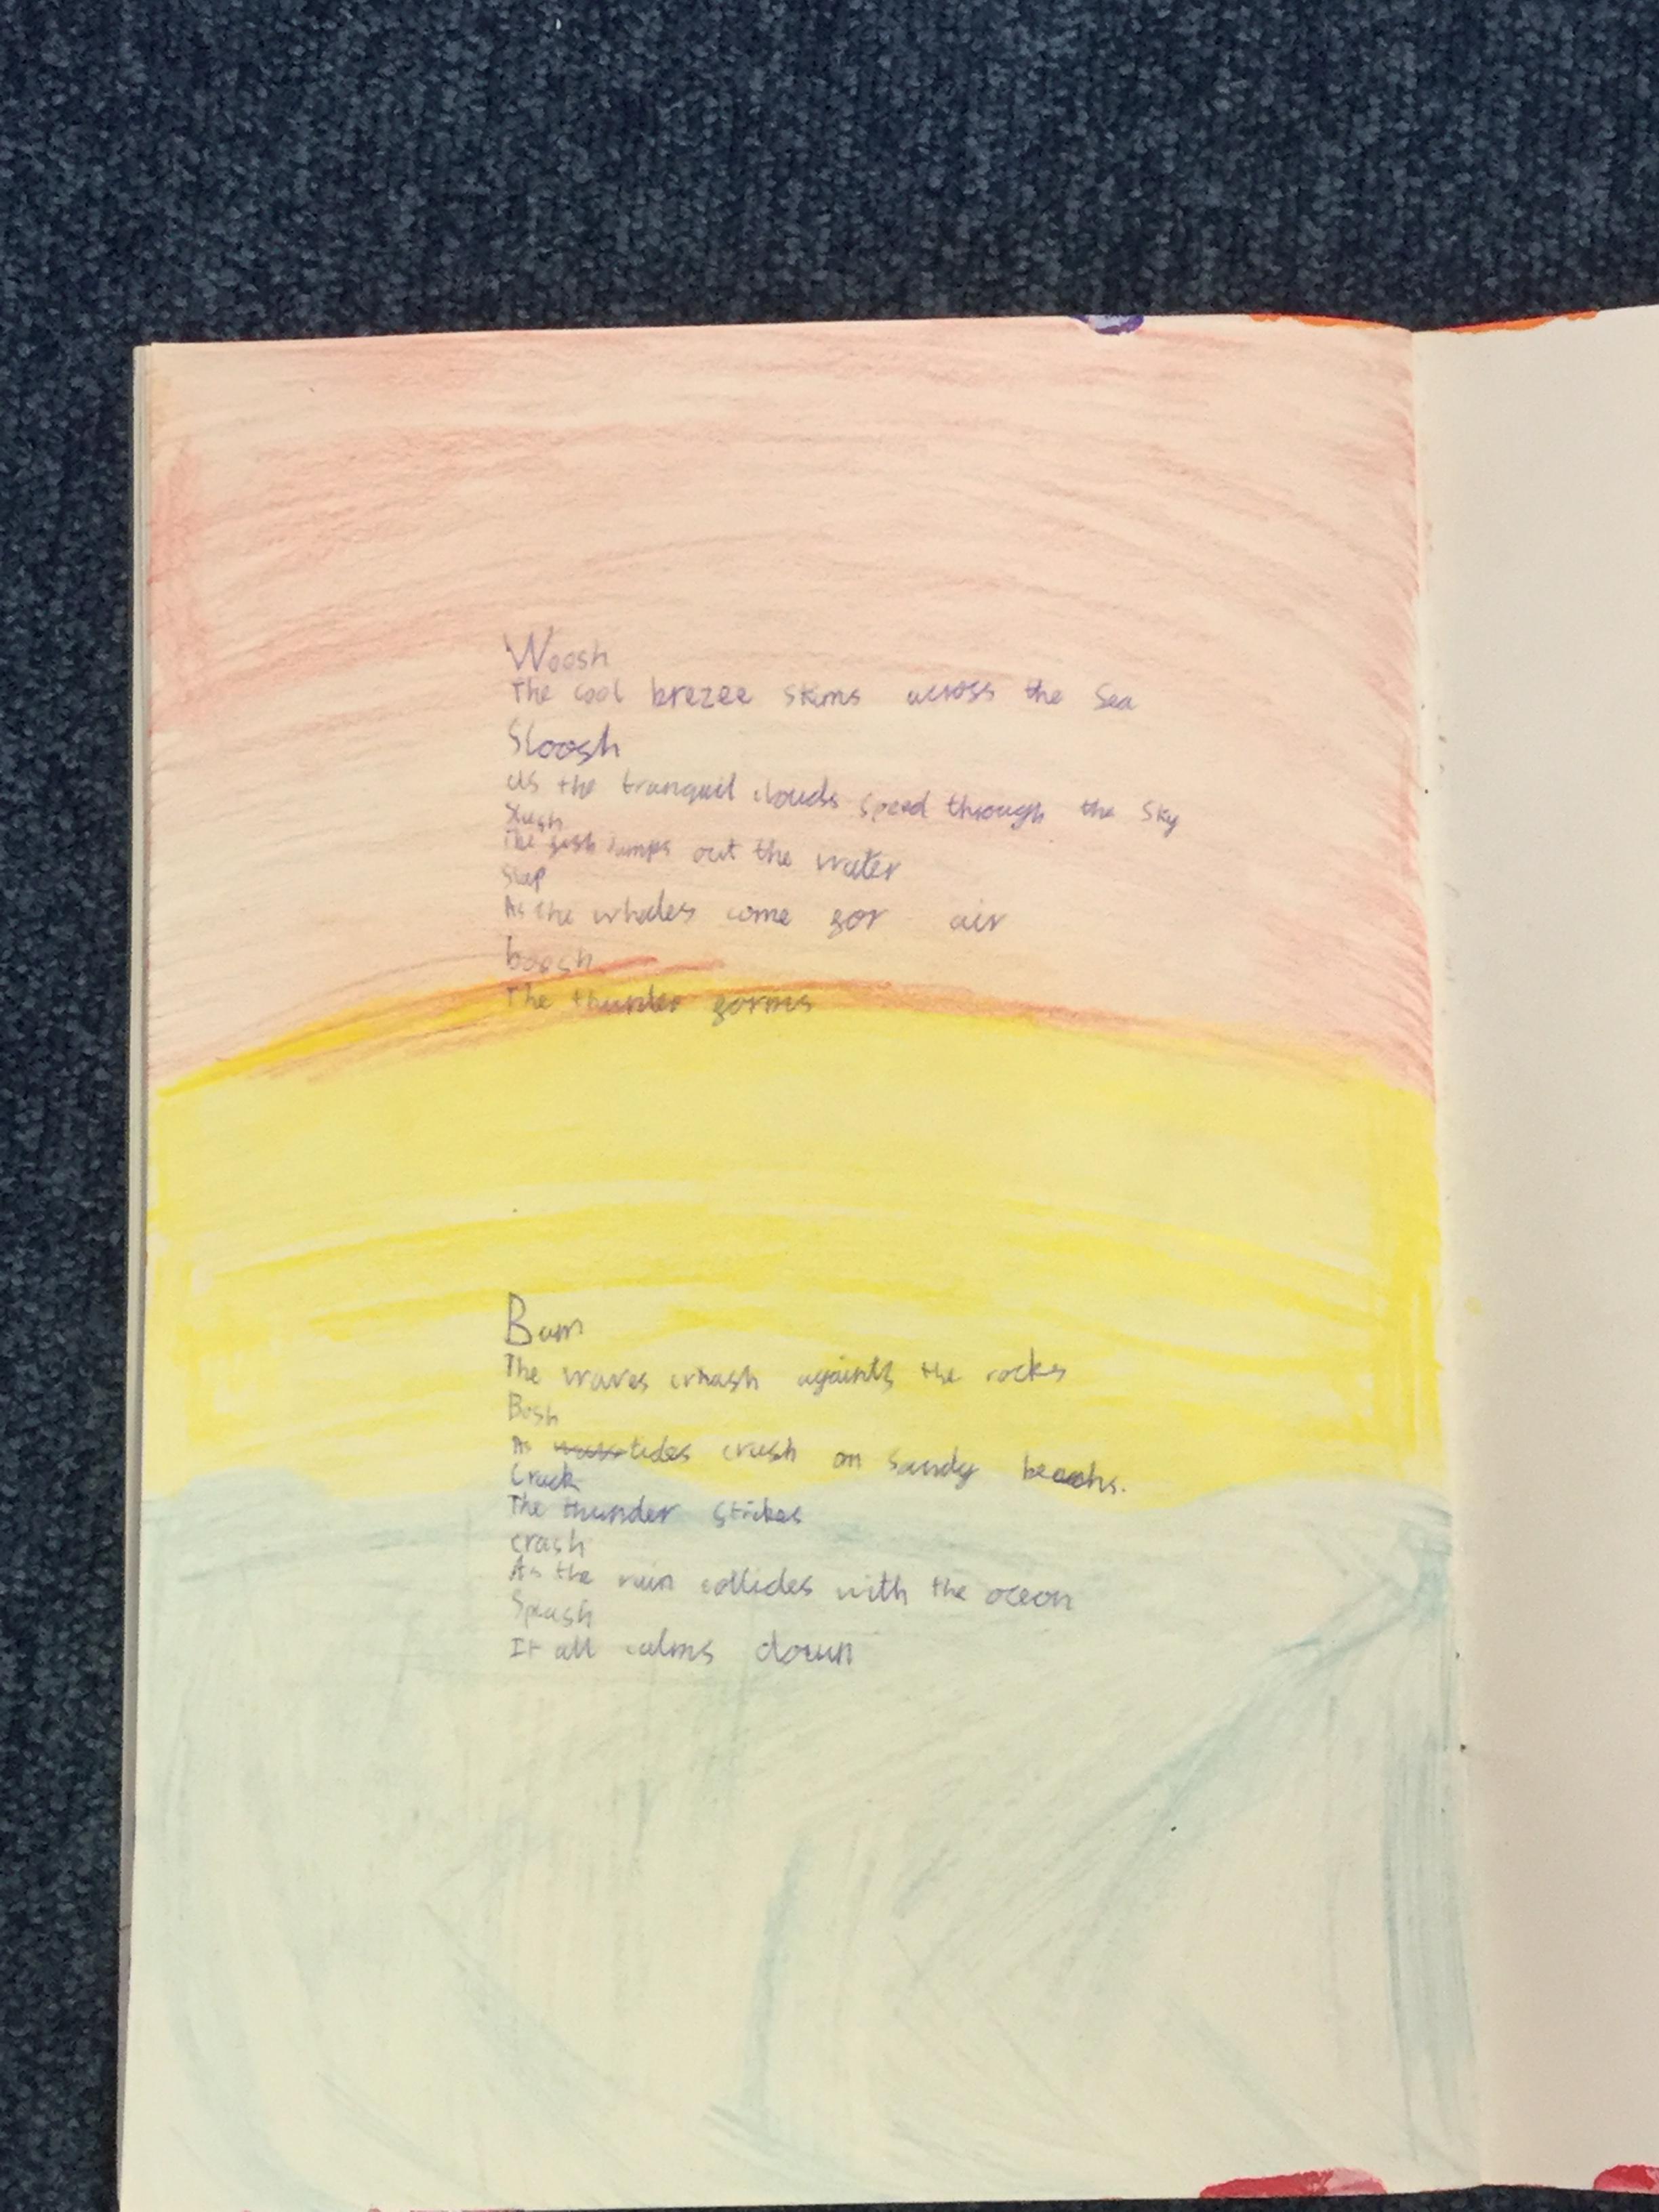 Woosh
The cool brezee skims across the Sea
Sloosh
as the tranquil clouds speed through the Sky
The fish jumps out the water
Slap
As the whales come for air
boosh
The thunder forms
Bam
The waves crhash againts the rocks
Bosh
As tides crush on Sandy beachs.
Crack
The thunder strikes
crash
As the rain collides with the ocean
Splash
It all calms down